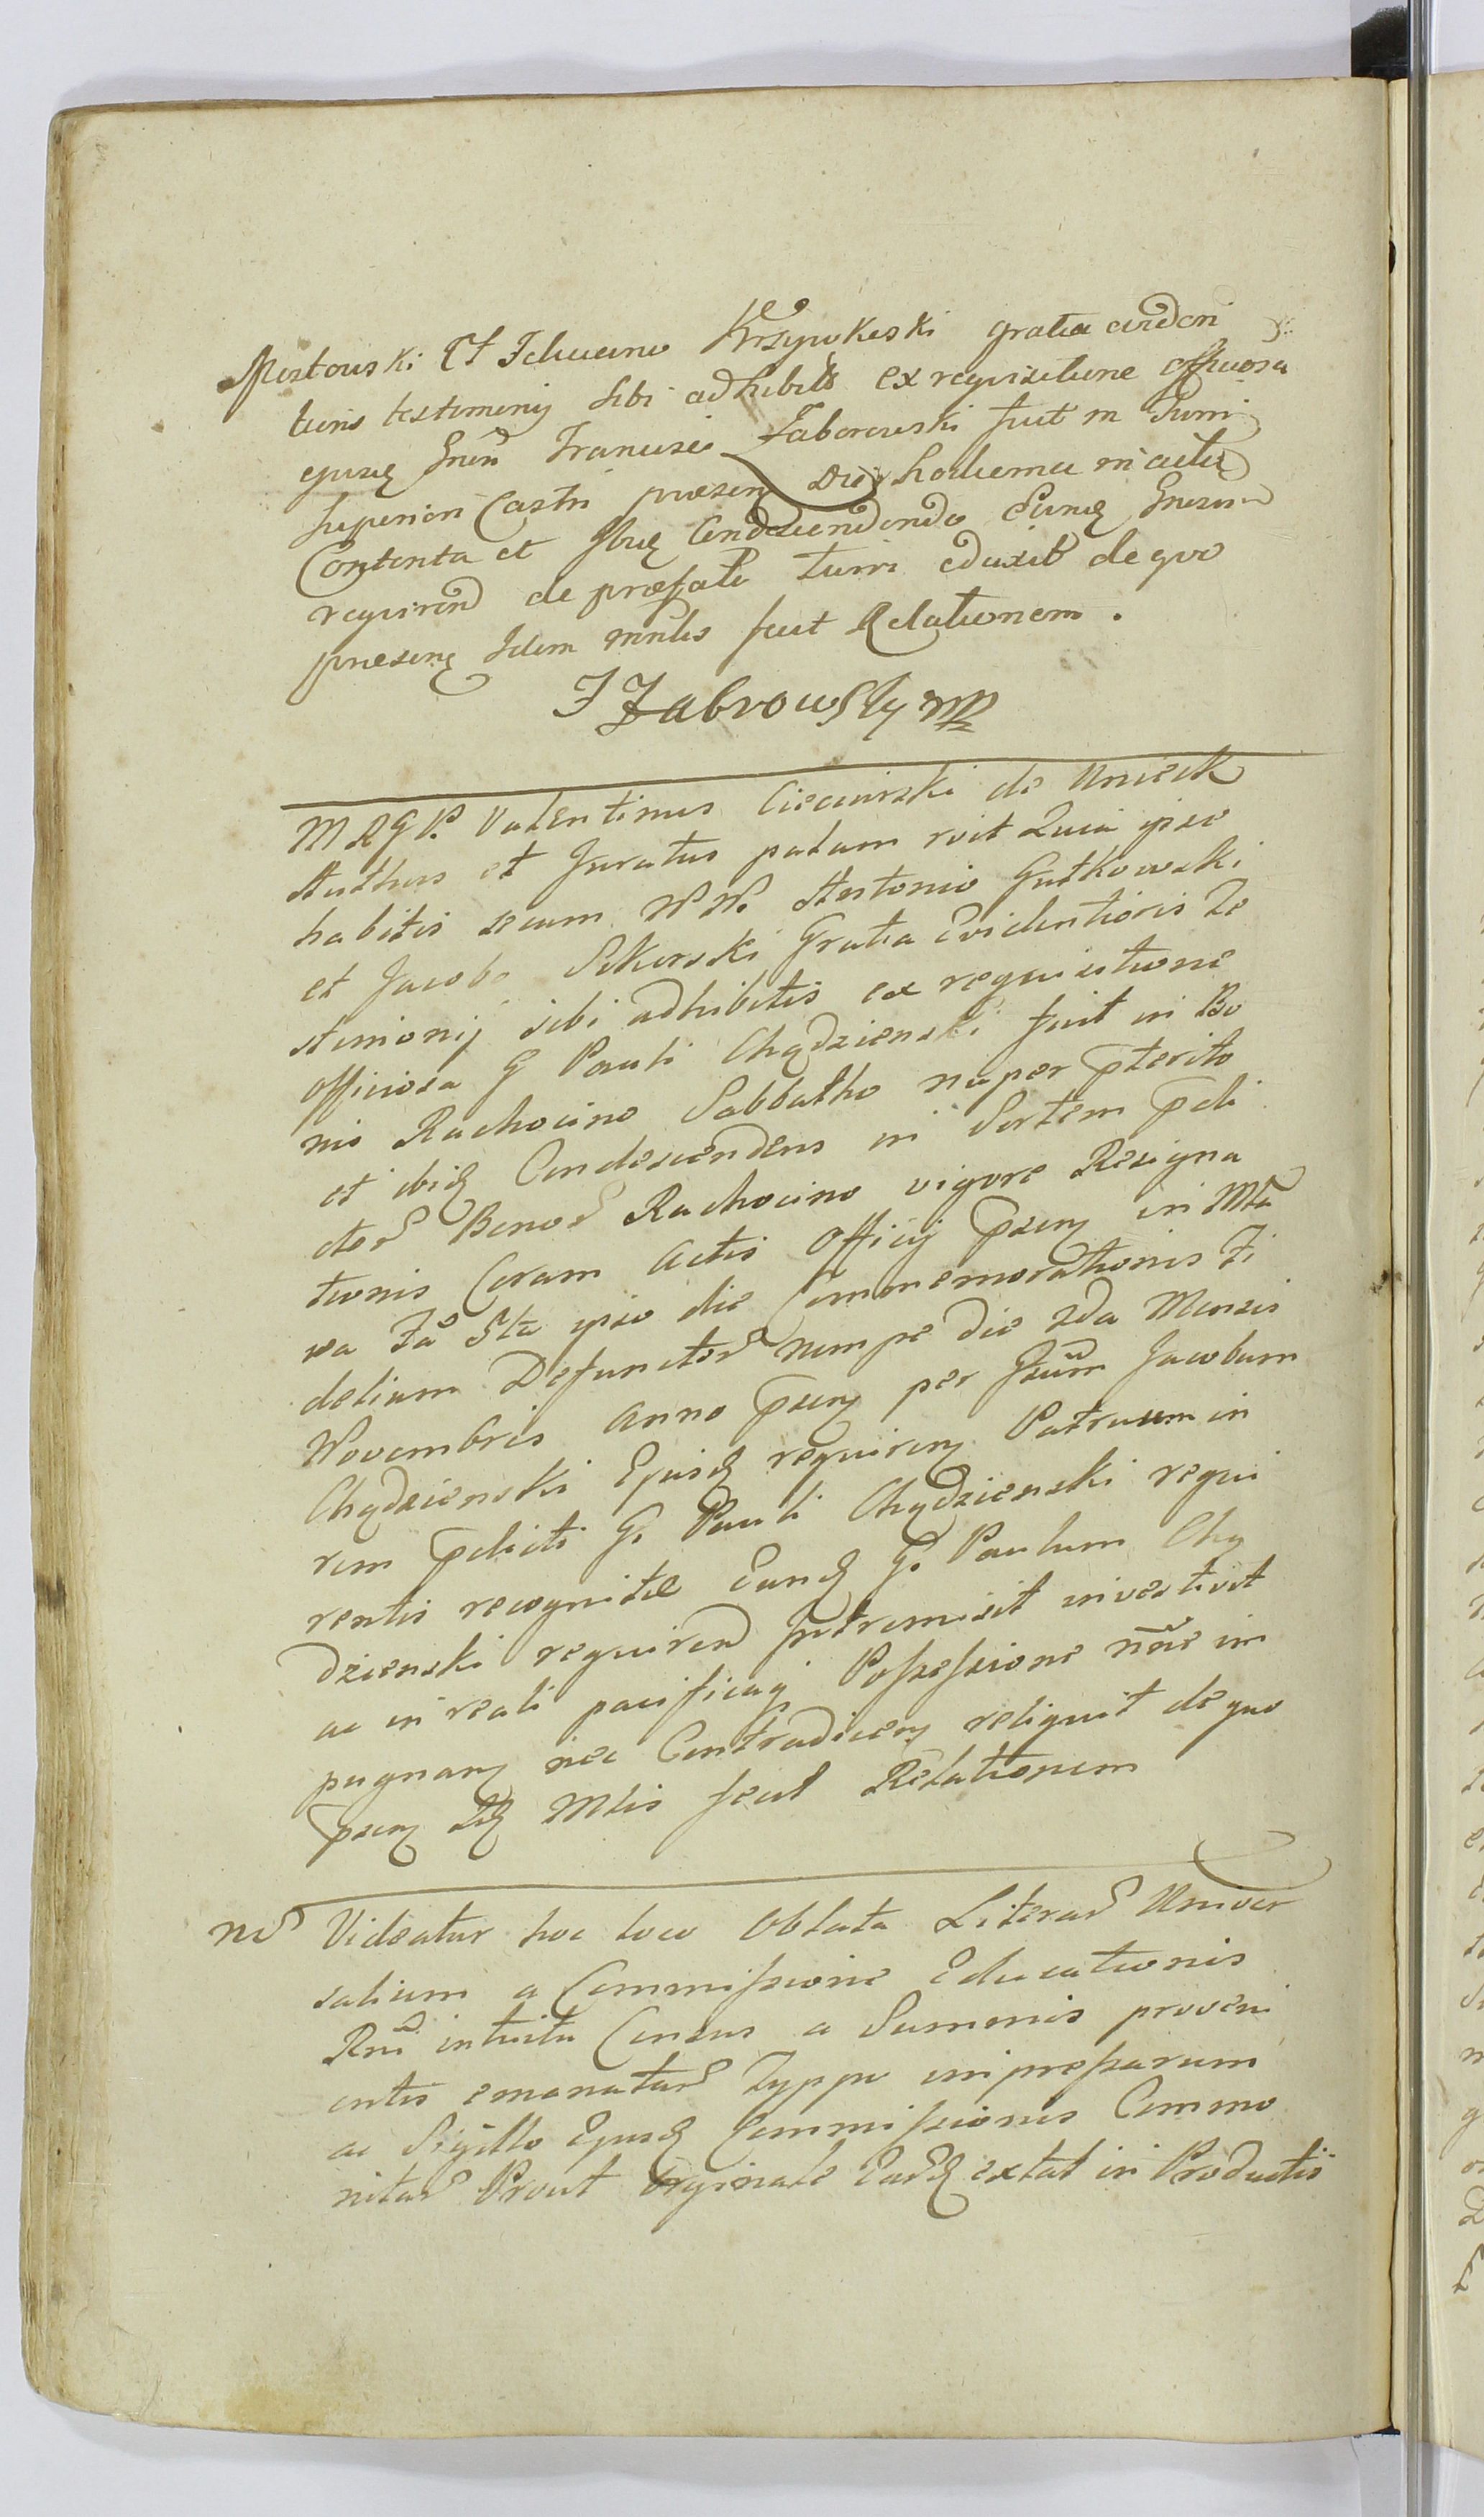 Mostowski Et Feliciano Krzywkoski gratia eviden
tioris testimonij sibi adhibitis ex requisitione officiosa
ejusq Gnsi Francisci Zaborowski fuit in Turri
superiori Castri praesen Die hodierna in actu
Contenta et Ibiq Condescendendo Eunq Gnerum
requiren de praefata turri eduxit de quo
praesenq Idem mnlis fecit Relationem.
F Zabrowsky mp
M R G P. Valentinus Ciecierski de Unieck
Authus et Juratus palam rvit Quia ipse
habitis secum NN. Antonio Gutkowski
et Jacobo Sikorski Gratia Evidentioris Te
stimonij sibi adhibitis ex requisitione
officiosa G Pauli Chądzienski fuit in Bo
nis Rachocino Sabbatho nuper pterito
et ibiq Condescendens in Sortem pdi
ctor Bonor Rachocino vigore Resigna
tionis Coram actis Officij psen in Mła
wa Fa Sta ipso die Commemorationis Fi
delium Defunctor nempe die 2da Mensis
Novembris anno psen per Gsum Jacobum
Chądzienski Ejusq requiren Patruum in
rem pdicti G. Pauli Chądzienski requi
rentis recognitae Eunq G. Paulum Chą
dzienski requiren Intromisit investivit
ac in reali pacificaq Possessione nne im
pugnan nec Contradicen reliquit de quo
psen Idq Mlis fecit Relationem
NB Videatur hoc loco Oblata Literar Univer
salium a Commissione Educationis
Rni intuitu Census a Summis proveni
entis emanatar Typpo impressarum
ac Sigillo Ejusq Commissionis Commo
nitar Prout Orginale Earq extat in Productis